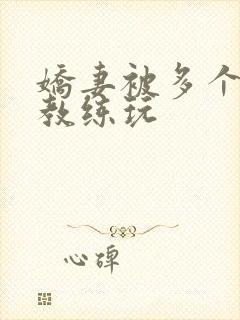 娇妻被多个
教练玩
心碑